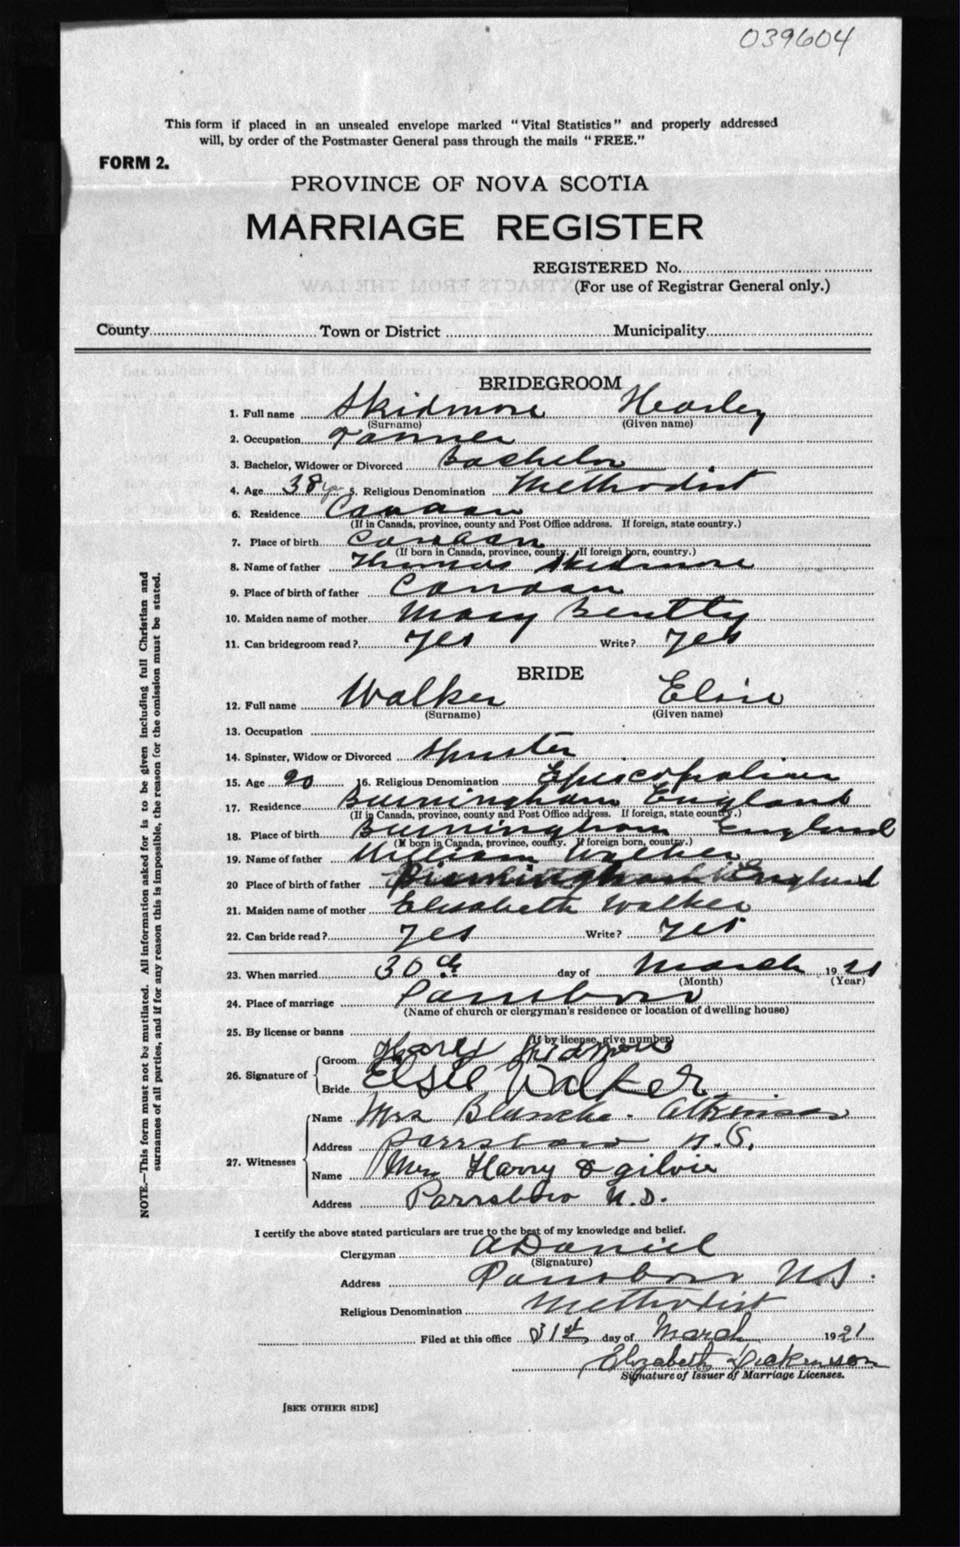 039604
This form if placed in an unsealed envelope marked "Vital Statistics" and properly addressed
will, by order of the Postmaster General pass through the mails "FREE."
FORM 2.
PROVINCE OF NOVA SCOTIA
MARRIAGE REGISTER
REGISTERED No.
(For use of Registrar General only.)
County Town or District Municipality
BRIDEGROOM
1. Full name Skidmore Harley
(Surname) (Given name)
2. Occupation Farmer
3. Bachelor, Widower or Divorced Bachelor
4. Age 38 5. Religious Denomination Methodist
6. Residence Canaan
(If in Canada, province, county and Post Office address. If foreign, state country.)
7. Place of birth Canaan
(If born in Canada, province, county. If foreign born, country.)
8. Name of father Thomas Skidmore
9. Place of birth of father Canaan
10. Maiden name of mother Mary Beatty
11. Can bridegroom read? Yes Write? Yes
BRIDE
12. Full name Walker Elsie
(Surname) (Given name)
13. Occupation
14. Spinster, Widow or Divorced Spinster
15. Age 20 16. Religious Denomination Episcopalian
17. Residence Burmingham England
(If in Canada, province, county and Post Office address. If foreign, state country.)
18. Place of birth Burmingham England
(If born in Canada, province, county. If foreign born, country.)
19. Name of father William Walker
20 Place of birth of father England
21. Maiden name of mother Elisabeth Walker
22. Can bride read? Yes Write? Yes
23. When married 30th day of March 1921
(Month) (Year)
24. Place of marriage Parrsboro
(Name of church or clergyman's residence or location of dwelling house)
25. By license or banns
(If by license, give number)
26. Signature of Groom Harley Skidmore
Bride Elsie Walker
27. Witnesses Name Mrs Blanche Atkinson
Address Parrsboro N.S.
Name Mrs Harry Ogilvie
Address Parrsboro N.S.
I certify the above stated particulars are true to the best of my knowledge and belief.
Clergyman A Daniel
(Signature)
Address Parrsboro N.S.
Religious Denomination Methodist
Filed at this office 31st day of March 1921
Elizabeth Dickinson
Signature of Issuer of Marriage Licenses.
[SEE OTHER SIDE]
NOTE.—This form must not be mutilated. All information asked for is to be given including full Christian and
surnames of all parties, and if for any reason this is impossible, the reason for the omission must be stated.